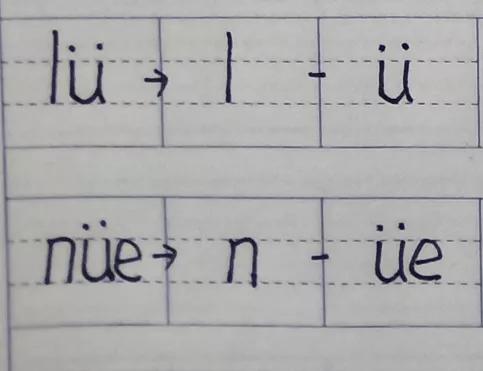 lü → l - ü
nüe → n - üe